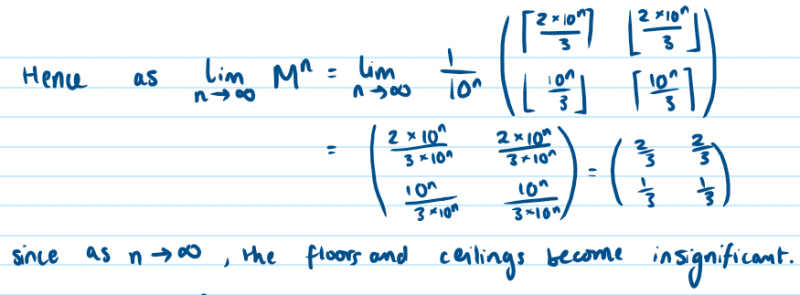 Hence as lim n→∞ Mⁿ = lim n→∞ 1/10ⁿ ( ⌈2×10ⁿ/3⌉ ⌊2×10ⁿ/3⌋
⌊10ⁿ/3⌋ ⌈10ⁿ/3⌉ )
= ( 2×10ⁿ/3×10ⁿ 2×10ⁿ/3×10ⁿ
10ⁿ/3×10ⁿ 10ⁿ/3×10ⁿ ) = ( 2/3 2/3
1/3 1/3 )
since as n→∞, the floors and ceilings become insignificant.